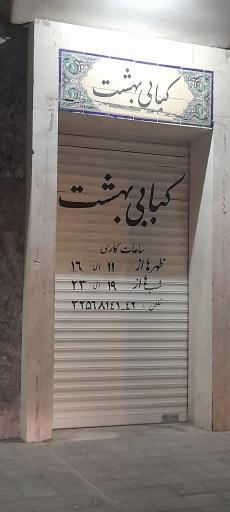 کبابی بهشت
کبابی بهشت
ساعات کاری
ظهرها از ۱۱ الی ۱۶
شب‌ها از ۱۹ الی ۲۳
تلفن : ۴۲_۳۲۵۶۸۱۴۱